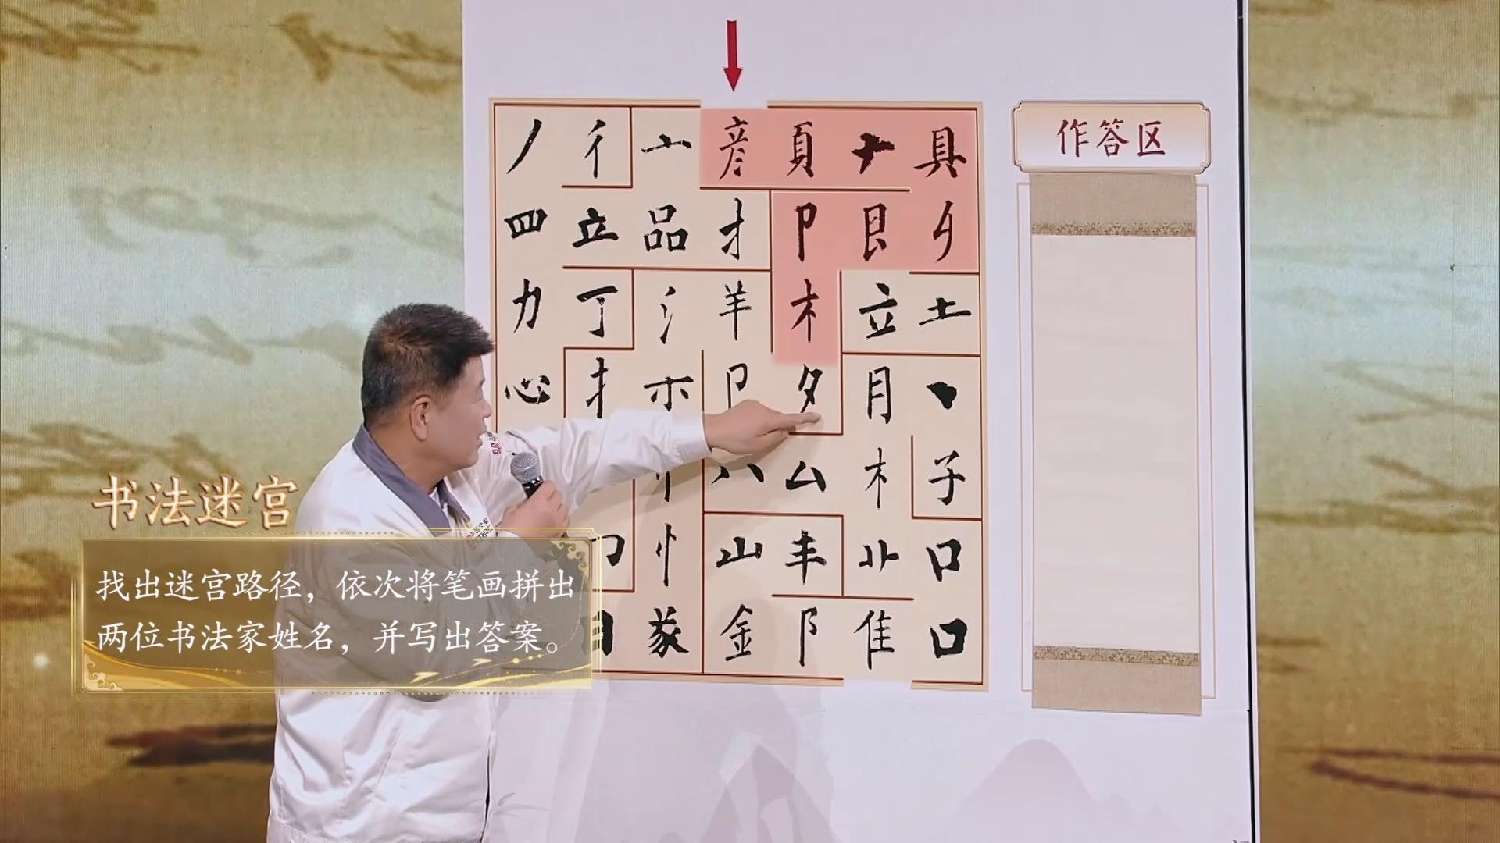 作答区
丿彳亠彦頁𠂇具
四立品才卩艮
力丁氵羊木立土
心扌木卩夕月丶
八厶木子
忄山丰口
豕金阝隹口
书法迷宫
找出迷宫路径，依次将笔画拼出
两位书法家姓名，并写出答案。